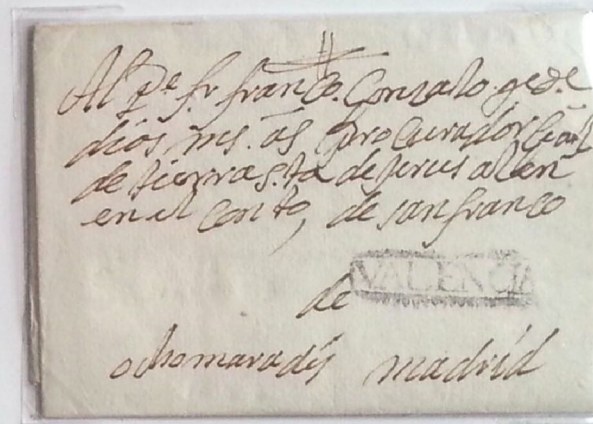 Al Pe. fr. franco. Gonzalo. g e. d. e
dios ms. as procurador Gral
de tierra s.ta de jerusalen
en el conto, de san franco
VALENCIA
de
ocho maradis madrid